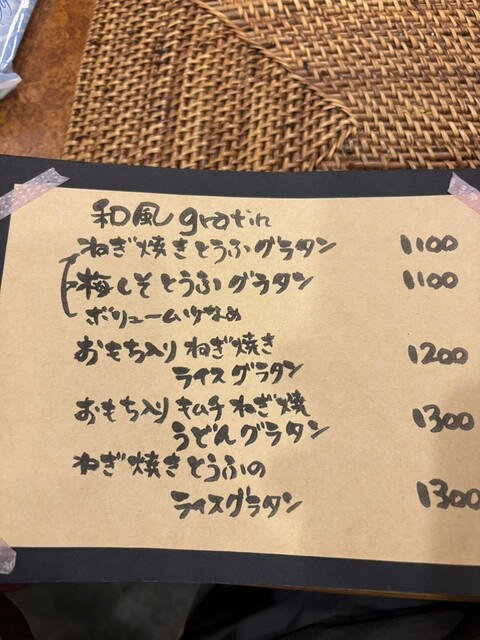 和風gratin
ねぎ焼きとうふグラタン 1100
梅しそとうふグラタン 1100
ボリューム少なめ
おもち入りねぎ焼き
ライスグラタン 1200
おもち入りキムチねぎ焼
うどんグラタン 1300
ねぎ焼きとうふの
ライスグラタン 1300